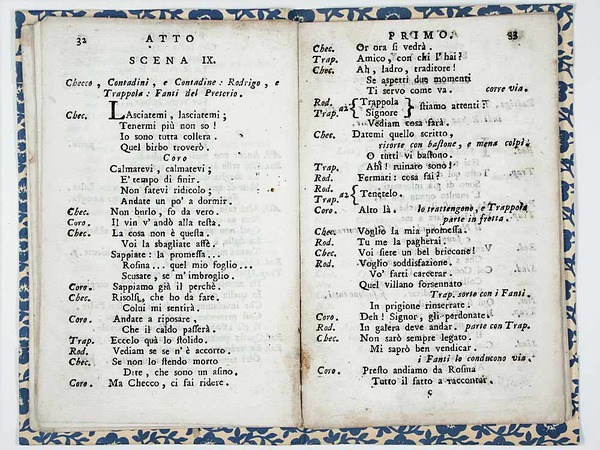 32 ATTO
SCENA IX.
Checco, Contadini, e Contadine: Rodrigo, e
Trappola: Fanti del Pretorio.
Chec. LAsciatemi, lasciatemi;
Tenermi più non so!
Io sono tutta collera.
Quel birbo troverò.
Coro
Calmatevi, calmatevi;
E' tempo di finir.
Non fatevi ridicolo;
Andate un po' a dormir.
Chec. Non burlo, fo da vero.
Coro. Il vin v' andò alla testa.
Chec. La cosa non è questa.
Voi la sbagliate affè.
Sappiate: la promessa...
Rosina... quel mio foglio...
Scusate, se m' imbroglio.
Coro. Sappiamo già il perchè.
Chec. Risolsi, che ho da fare.
Colui mi sentirà.
Coro. Andate a riposare,
Che il caldo passerà.
Trap. Eccelo quà lo stolido.
Rod. Vediam se se n' è accorto.
Chec. Se non lo stendo morto
Dite, che sono un asino.
Coro. Ma Checco, ci fai ridere.
PRIMO. 33
Chec. Or ora si vedrà.
Trap. Amico, con chi l' hai?
Chec. Ah, ladro, traditore!
Se aspetti due momenti
Ti servo come va. corre via.
Rod. Trap. a2 { Trappola Signore } stiamo attenti?
Vediam cosa farà.
Chec. Datemi quello scritto,
risorte con bastone, e mena colpi.
O tutti vi bastono.
Trap. Ahi! ruinato sono!
Rod. Fermati: cosa fai?
Rod. Trap. a2 { Tenetelo.
Coro. Alto là. lo trattengono, e Trappola
parte in fretta.
Chec. Voglio la mia promessa.
Rod. Tu me la pagherai.
Chec. Voi siete un bel briccone!
Rod. Voglio soddisfazione.
Vo' farti carcerar.
Quel villano forsennato
Trap. sorte con i Fanti.
In prigione rinserrate.
Coro. Deh! Signor, gli perdonate.
Rod. In galera deve andar. parte con Trap.
Chec. Non sarò sempre legato.
Mi saprò ben vendicar.
i Fanti lo conducono via.
Coro. Presto andiamo da Rosina
Tutto il fatto a raccontar.
c